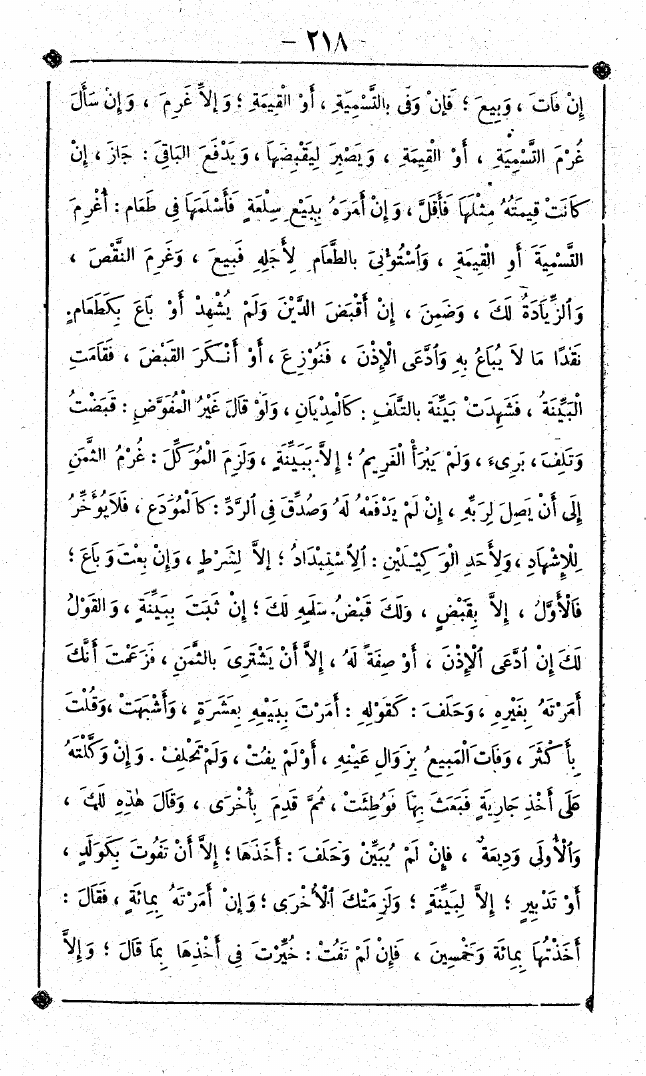 - ٢١٨ -
إِنْ فَاتَ ، وَبِيعَ ؛ فَإِنْ وَفَى بِالتَّسْمِيَةِ ، أَوْ الْقِيمَةِ ؛ وَإِلاَّ غَرِمَ ، وَإِنْ سَأَلَ
غُرْمَ التَّسْمِيَةِ ، أَوْ الْقِيمَةِ ، وَيَصْبِرَ لِيَقْبِضَهَا ، وَيَدْفَعَ الْبَاقِيَ : جَازَ ، إِنْ
كَانَتْ قِيمَتُهُ مِثْلَهَا فَأَقَلَّ ، وَإِنْ أَمَرَهُ بِبَيْعِ سِلْعَةٍ فَأَسْلَمَهَا فِي طَعَامٍ : أُغْرِمَ
التَّسْمِيَةَ أَوِ الْقِيمَةَ ، وَاسْتُؤْنِيَ بِالطَّعَامِ لِأَجَلِهِ فَبِيعَ ، وَغَرِمَ النَّقْصَ ،
وَالزِّيَادَةُ لَكَ ، وَضَمِنَ ، إِنْ أَقْبَضَ الدَّيْنَ وَلَمْ يُشْهِدْ أَوْ بَاعَ بِكَطَعَامٍ
نَقْدًا مَا لاَ يُبَاعُ بِهِ وَادَّعَى الْإِذْنَ ، فَنُوزِعَ ، أَوْ أَنْكَرَ الْقَبْضَ ، فَقَامَتِ
الْبَيِّنَةُ ، فَشَهِدَتْ بَيِّنَة بِالتَّلَفِ : كَالْمِدْيَانِ ، وَلَوْ قَالَ غَيْرُ الْمُفَوَّضِ : قَبَضْتُ
وَتَلِفَ ، بَرِيءَ ، وَلَمْ يَبْرَأْ الْغَرِيمُ ؛ إِلاَّ بِبَيِّنَةٍ ، وَلَزِمَ الْمُوَكِّلَ : غُرْمُ الثَّمَنِ
إِلَى أَنْ يَصِلَ لِرَبِّهِ ، إِنْ لَمْ يَدْفَعْهُ لَهُ وَصُدِّقَ فِي الرَّدِّ : كَالْمُودَعِ ، فَلَا يُؤَخَّرُ
لِلْإِشْهَادِ ، وَلِأَحَدِ الْوَكِيلَيْنِ : الِاسْتِبْدَادُ ؛ إِلاَّ لِشَرْطٍ ، وَإِنْ بِعْتَ وَبَاعَ ؛
فَالْأَوَّلُ ، إِلاَّ بِقَبْضٍ ، وَلَكَ قَبْضُ سَلَمِهِ لَكَ ؛ إِنْ ثَبَتَ بِبَيِّنَةٍ ، وَالْقَوْلُ
لَكَ إِنْ ادَّعَى الْإِذْنَ ، أَوْ صِفَةً لَهُ ، إِلاَّ أَنْ يَشْتَرِيَ بِالثَّمَنِ ، فَزَعَمْتَ أَنَّكَ
أَمَرْتَهُ بِغَيْرِهِ ، وَحَلَفَ : كَقَوْلِهِ : أَمَرْتَ بِبَيْعِهِ بِعَشَرَةٍ ، وَأَشْبَهَتْ ، وَقُلْتَ
بِأَكْثَرَ ، وَفَاتَ الْمَبِيعُ بِزَوَالِ عَيْنِهِ ، أَوْ لَمْ يَفُتْ ، وَلَمْ تَحْلِفْ . وَإِنْ وَكَّلْتَهُ
عَلَى أَخْذِ جَارِيَةٍ فَبَعَثَ بِهَا فَوُطِئَتْ ، ثُمَّ قَدِمَ بِأُخْرَى ، وَقَالَ هٰذِهِ لَكَ ،
وَالْأُولَى وَدِيعَةٌ ، فَإِنْ لَمْ يُبَيِّنْ وَحَلَفَ : أَخَذَهَا ؛ إِلاَّ أَنْ تَفُوتَ بِكَوَلَدٍ ،
أَوْ تَدْبِيرٍ ؛ إِلاَّ لِبَيِّنَةٍ ؛ وَلَزِمَتْكَ الْأُخْرَى ؛ وَإِنْ أَمَرْتَهُ بِمِائَةٍ ، فَقَالَ :
أَخَذْتُهَا بِمِائَة وَخَمْسِينَ ، فَإِنْ لَمْ تَفُتْ : خُيِّرْتَ فِي أَخْذِهَا بِمَا قَالَ ؛ وَإِلاَّ